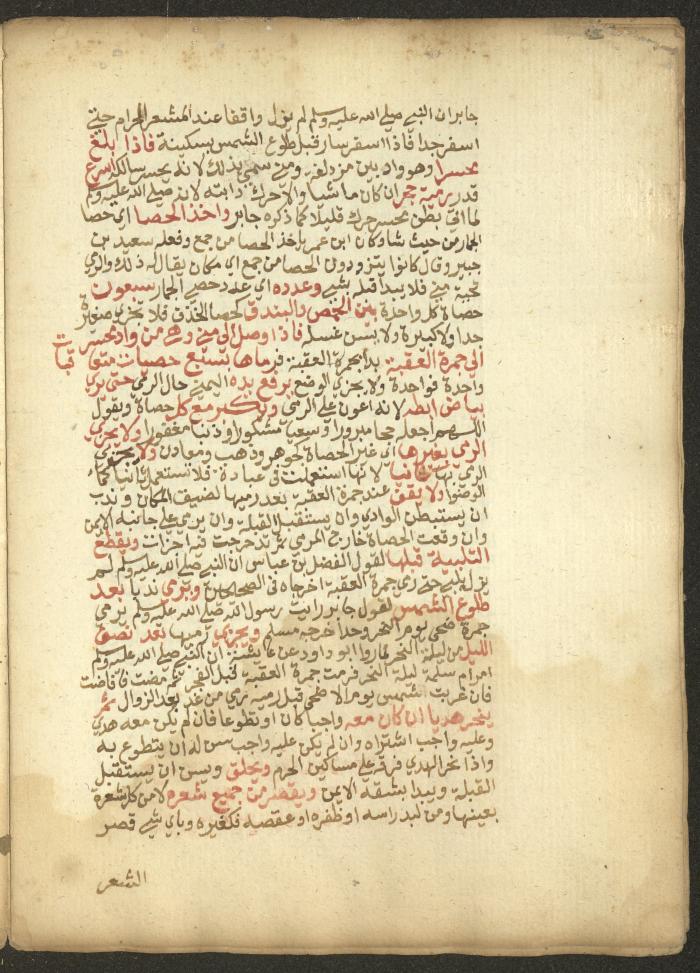 جابر ان النبي صلى الله عليه وسلم لم يزل واقفا عند المشعر الحرام حتى
اسفر جدا فاذا اسفر سار قبل طلوع الشمس بسكينة فاذا بلغ
محسرا وهو واد بين مزدلفة ومنى سمي بذلك لانه يحسر سالكه اسرع
قدر رمية حجر ان كان ماشيا والا حرك دابته لانه صلى الله عليه وسلم
لما اتى بطن محسر حرك قليلا كما ذكره جابر واخذ الحصا اي حصا
الجمار من حيث شاء وكان ابن عمر ياخذ الحصا من جمع وفعله سعيد بن
جبير وقال كانوا يتزودون الحصا من جمع اي مكان يقال له ذلك والرمي
تحية منى فلا يبدا قبله بشيء وعدده اي عدد حصى الجمار سبعون
حصاة كل واحدة بين الحمص والبندق كحصا الخذف فلا تجزي صغيرة
جدا ولا كبيرة ولا يسن غسله فاذا وصل الى منى وهي من وادي محسر
الى جمرة العقبة بدا بجمرة العقبة فرماها بسبع حصيات متعاقبات
واحدة فواحدة ولا يجزي الوضع يرفع يده اليمنى حال الرمي حتى يرى
بياض ابطه لانه اعون على الرمي ويكبر مع كل حصاة ويقول
اللهم اجعله حجا مبرورا وسعيا مشكورا وذنبا مغفورا ولا يجزي
الرمي بغيرها اي غير الحصاة كجوهر وذهب ومعادن ولا يجزي
الرمي بها ثانيا لانها استعملت في عبادة فلا تستعمل ثانيا كماء
الوضوء ولا يقف عند جمرة العقبة بعد رميها لضيق المكان وندب
ان يستبطن الوادي وان يستقبل القبلة وان يرمي على جانبه الايمن
وان وقعت الحصاة خارج المرمى ثم تدحرجت فيه اجزات ويقطع
التلبية قبلها لقول الفضل بن عباس ان النبي صلى الله عليه وسلم لم
يزل يلبي حتى رمى جمرة العقبة اخرجاه في الصحيحين ويرمي ندبا بعد
طلوع الشمس لقول جابر رايت رسول الله صلى الله عليه وسلم يرمي
جمرة ضحى يوم النحر وحده اخرجه مسلم ويجزي رميها بعد نصف
الليل من ليلة النحر لما روى ابو داود عن عائشة ان النبي صلى الله عليه وسلم
امر ام سلمة ليلة النحر فرمت جمرة العقبة قبل الفجر ثم مضت فافاضت
فان غربت الشمس يوم الاضحى قبل رميه رمى من غد بعد الزوال ثم
ينحر هديا ان كان معه واجبا كان او تطوعا فان لم يكن معه هدي
وعليه واجب اشتراه وان لم يكن عليه واجب سن له ان يتطوع به
واذا نحر الهدي فرقه على مساكين الحرم ويحلق ويسن ان يستقبل
القبلة ويبدا بشقه الايمن ويقصر من جميع شعره لا من كل شعرة
بعينها ومن لبد راسه او ظفره او عقصه فكغيره وباي شيء قصر
الشعر